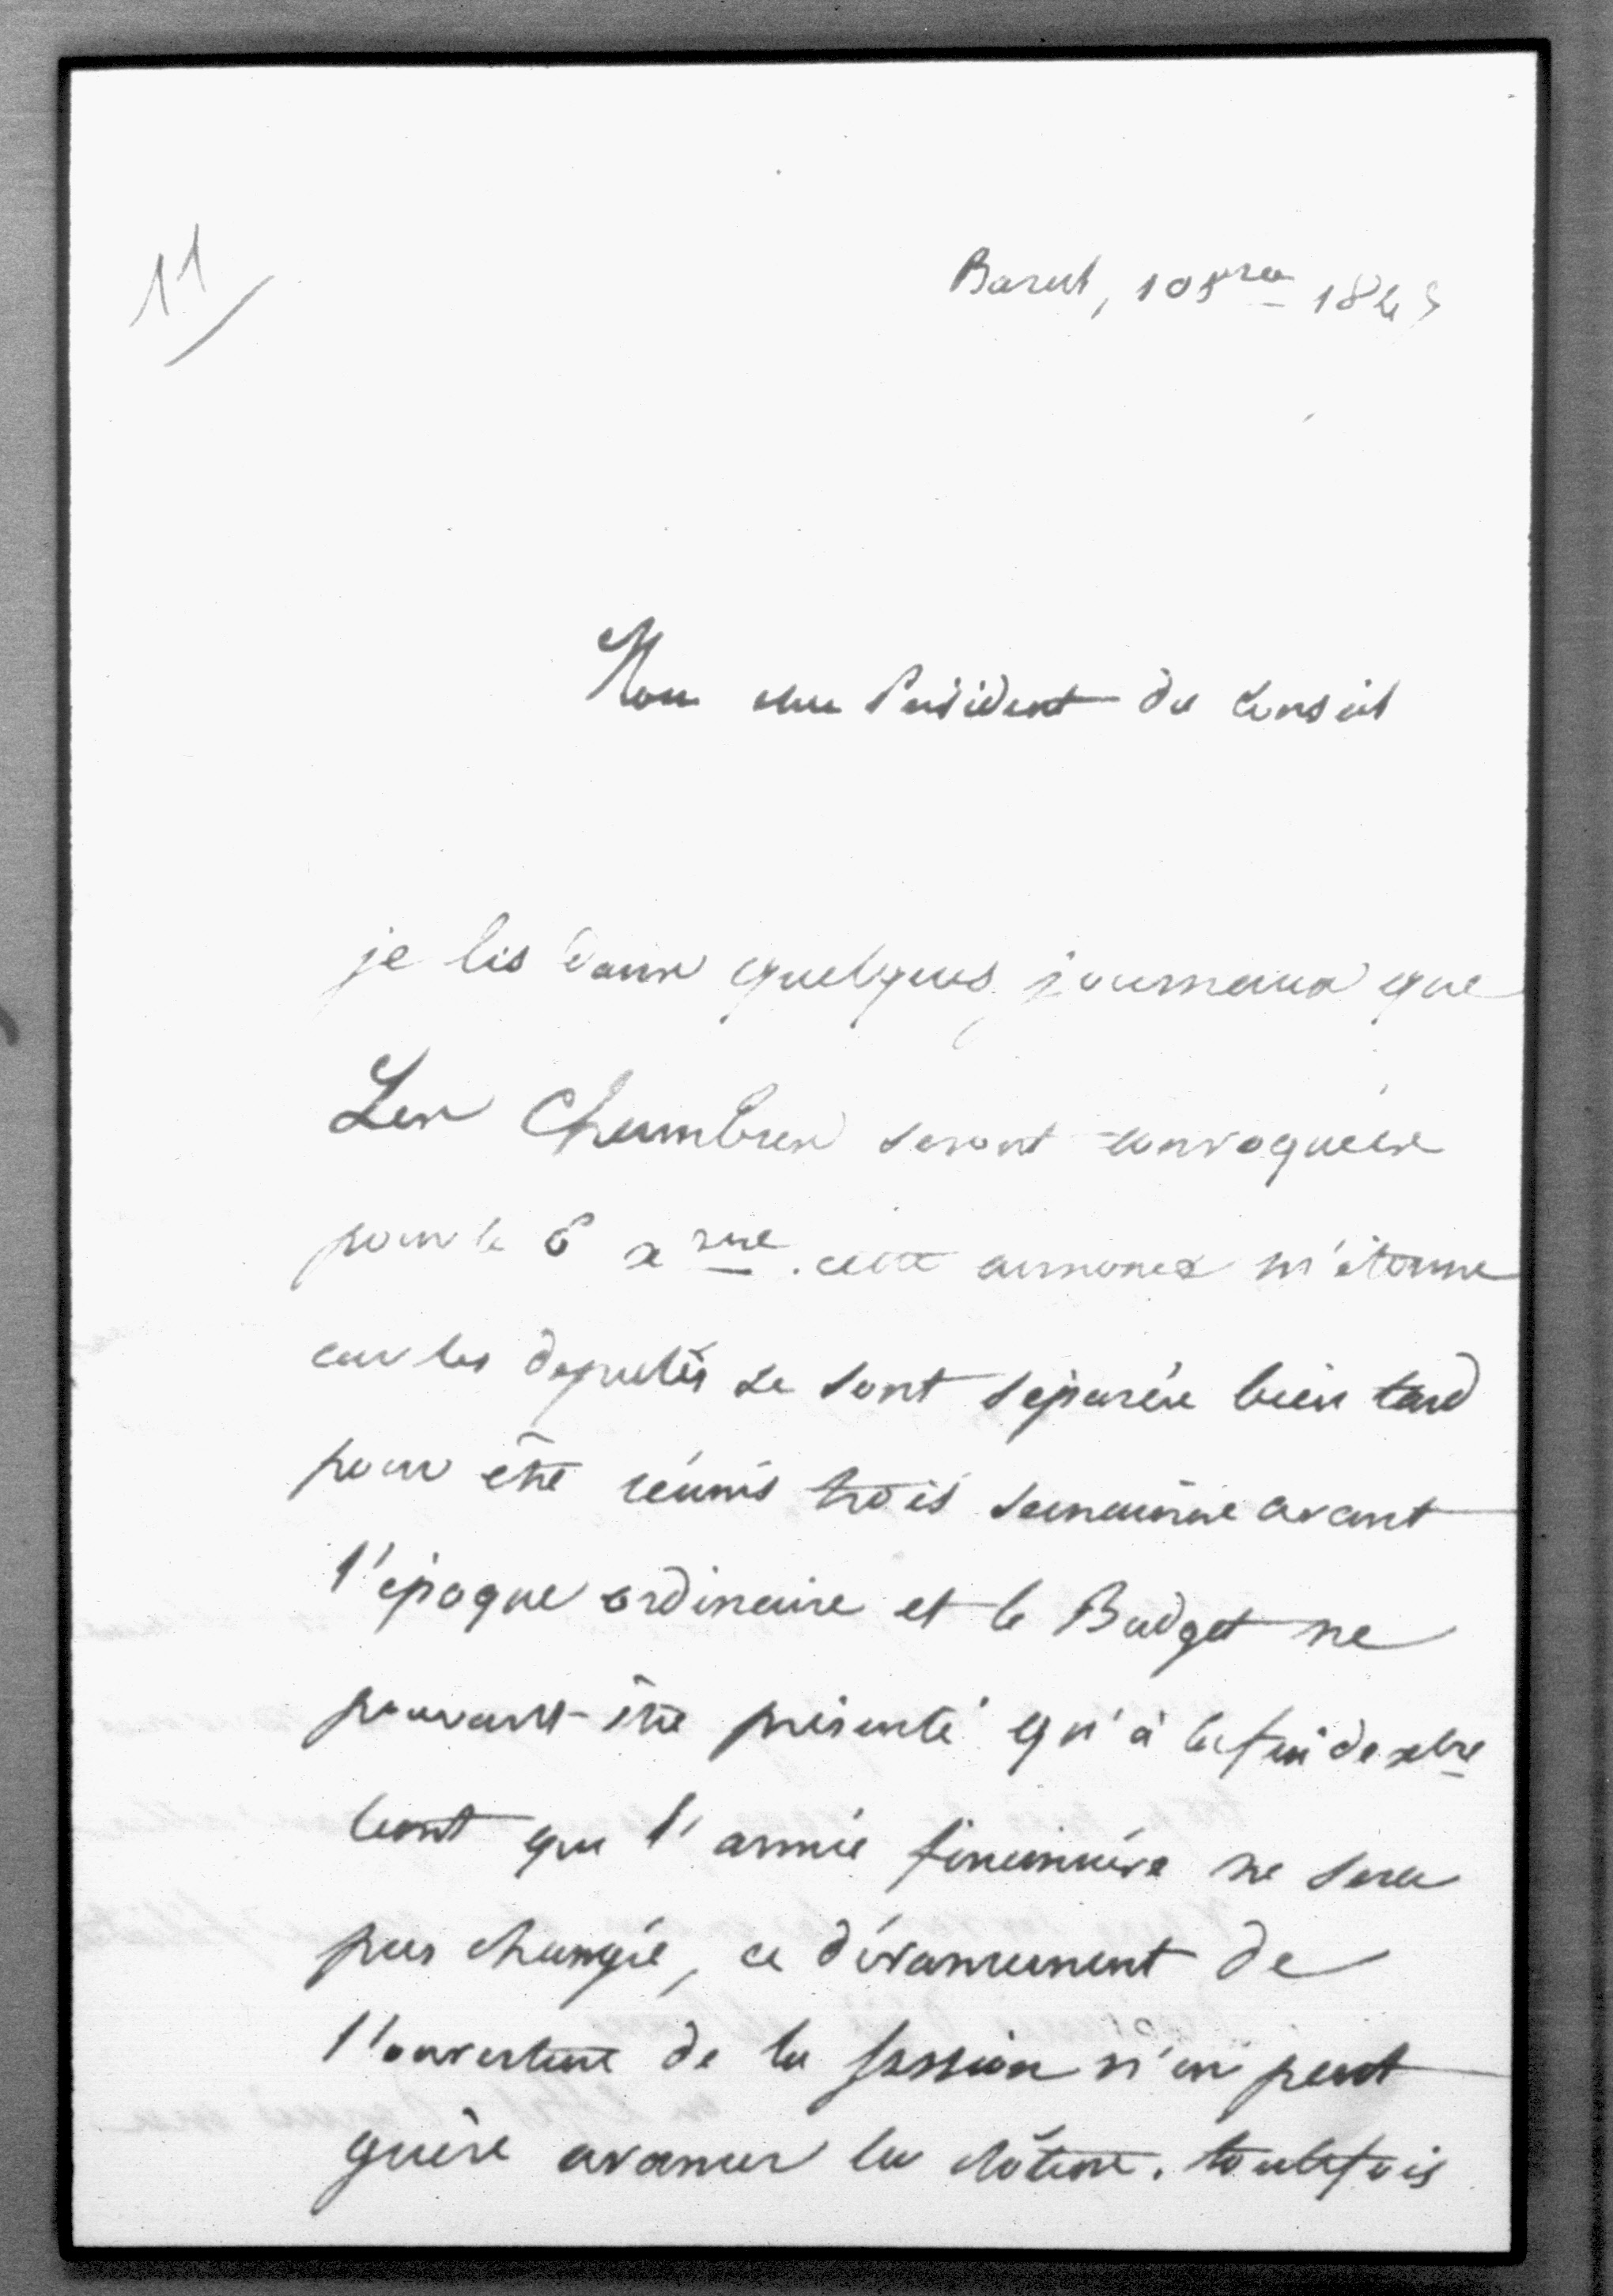 11
Barut, 10 8bre 1843
Mon cher Président du Conseil
je lis dans quelques journaux que
Les Chambres seront convoquées
pour le 6 xbre. cette annonce m'étonne
car les députés se sont séparés bien tard
pour être réunis trois semaines avant
l'époque ordinaire et le Budget ne
pouvant être présenté qu'à la fin de xbre
tant que l'année financière ne sera
pas changée, ce dévancement de
l'ouverture de la session n'en peut
guère avancer la clôture. toutefois